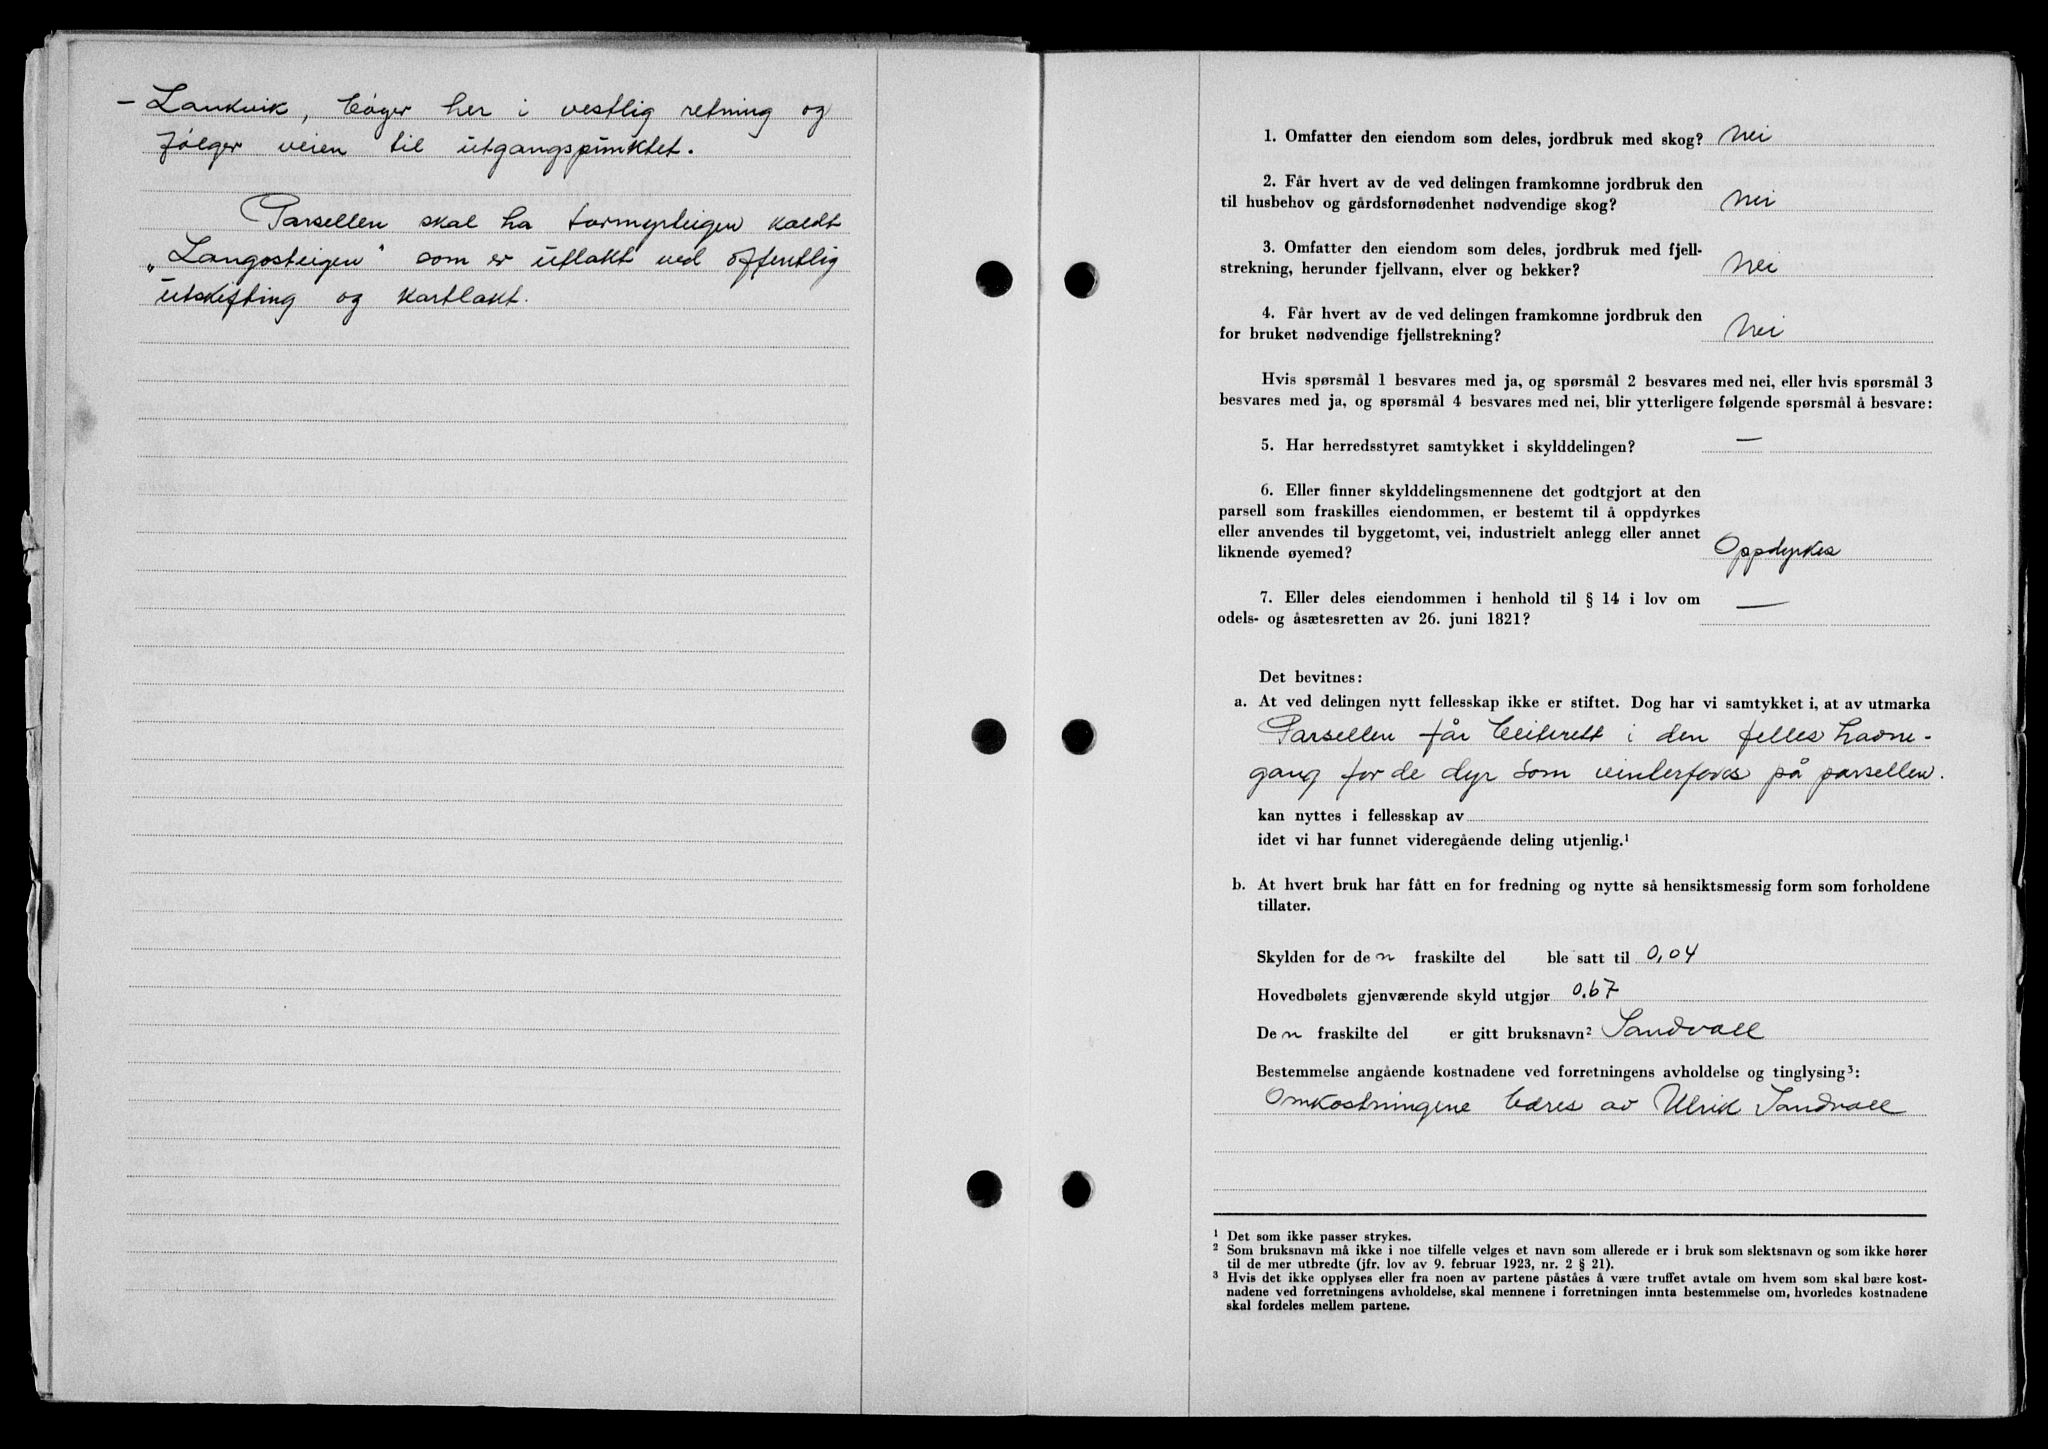 - Lankvik, bøyer her i vestlig retning og
følger veien til utgangspunktet.
Parsellen skal ha tormyrteigen kaldt
„Langosteigen" som er utlakt ved offentlig
utskifting og kartlakt.
1. Omfatter den eiendom som deles, jordbruk med skog? Nei
2. Får hvert av de ved delingen framkomne jordbruk den
til husbehov og gårdsfornødenhet nødvendige skog? Nei
3. Omfatter den eiendom som deles, jordbruk med fjell-
strekning, herunder fjellvann, elver og bekker? Nei
4. Får hvert av de ved delingen framkomne jordbruk den
for bruket nødvendige fjellstrekning? Nei
Hvis spørsmål 1 besvares med ja, og spørsmål 2 besvares med nei, eller hvis spørsmål 3
besvares med ja, og spørsmål 4 besvares med nei, blir ytterligere følgende spørsmål å besvare:
5. Har herredsstyret samtykket i skylddelingen? —
6. Eller finner skylddelingsmennene det godtgjort at den
parsell som fraskilles eiendommen, er bestemt til å oppdyrkes
eller anvendes til byggetomt, vei, industrielt anlegg eller annet
liknende øyemed? Oppdyrkes
7. Eller deles eiendommen i henhold til § 14 i lov om
odels- og åsætesretten av 26. juni 1821? —
Det bevitnes:
a. At ved delingen nytt fellesskap ikke er stiftet. Dog har vi samtykket i, at av utmarka
Parsellen får beiterett i den felles havne-
gang for de dyr som vinterfores på parsellen.
kan nyttes i fellesskap av
idet vi har funnet videregående deling utjenlig.¹
b. At hvert bruk har fått en for fredning og nytte så hensiktsmessig form som forholdene
tillater.
Skylden for den fraskilte del ble satt til 0,04
Hovedbølets gjenværende skyld utgjør 0.67
Den fraskilte del er gitt bruksnavn² Sandvoll
Bestemmelse angående kostnadene ved forretningens avholdelse og tinglysing³:
Omkostningene bæres av Ulrik Sandvoll
¹ Det som ikke passer strykes.
² Som bruksnavn må ikke i noe tilfelle velges et navn som allerede er i bruk som slektsnavn og som ikke hører
til de mer utbredte (jfr. lov av 9. februar 1923, nr. 2 § 21).
³ Hvis det ikke opplyses eller fra noen av partene påståes å være truffet avtale om hvem som skal bære kost-
nadene ved forretningens avholdelse, skal mennene i forretningen innta bestemmelse om, hvorledes kostnadene
skal fordeles mellem partene.